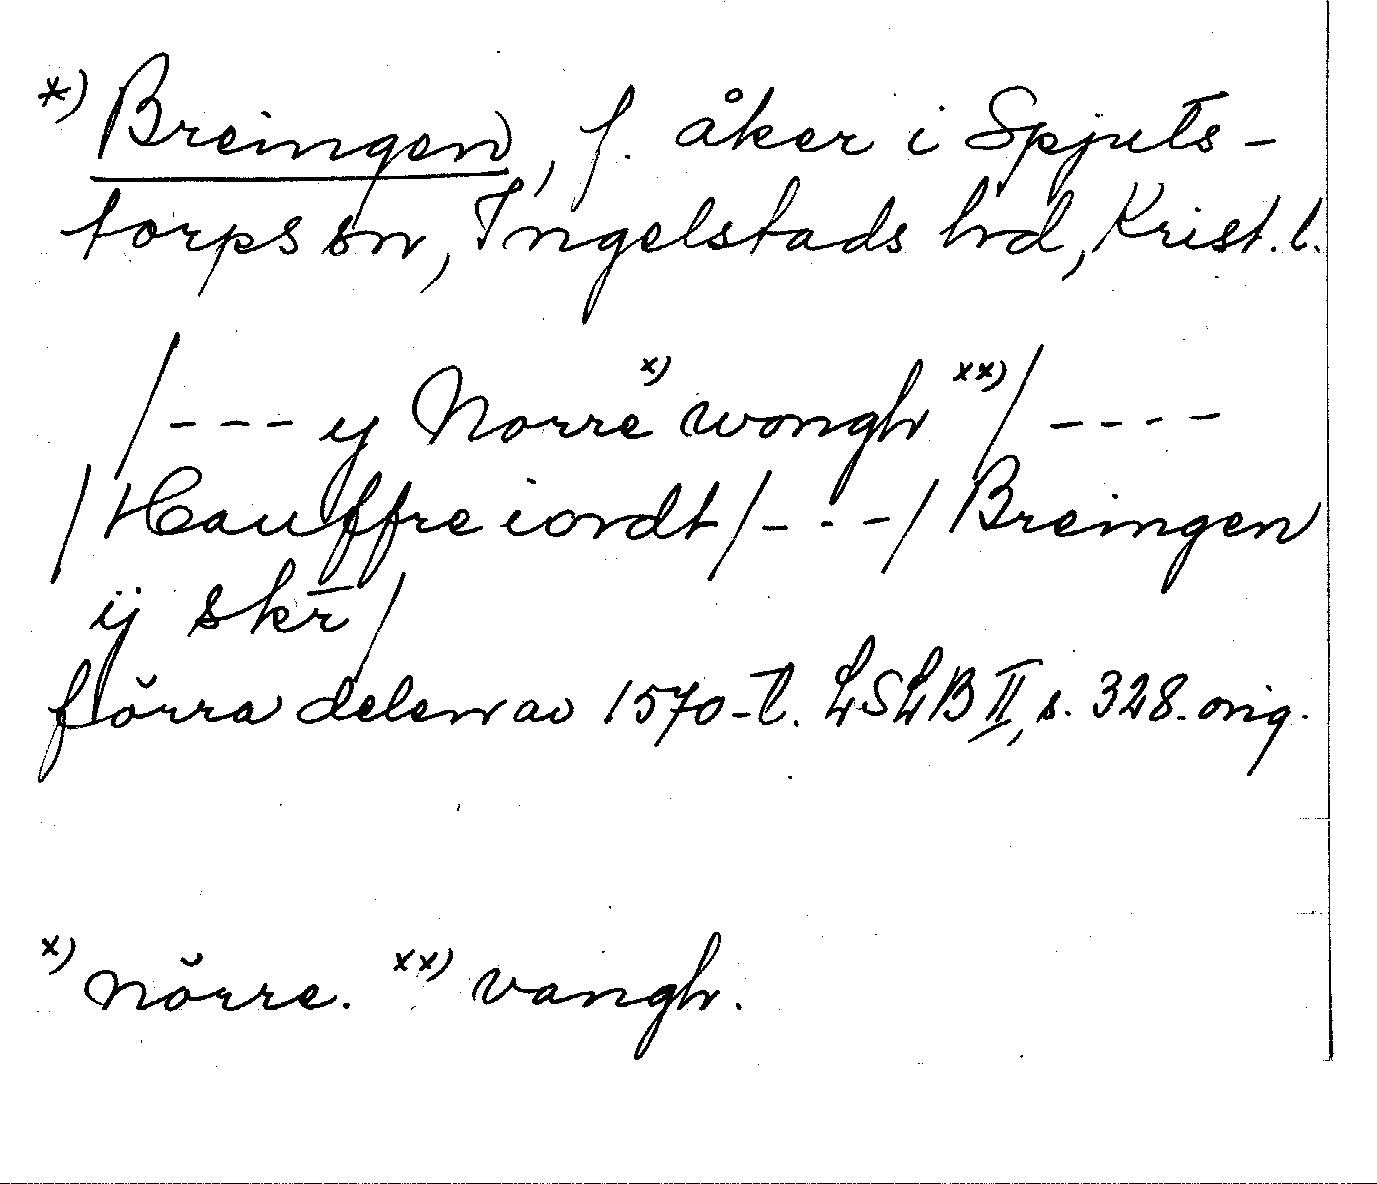 *) Breingen, f. åker i Spjuts-
torps sn, Ingelstads hd, Krist. l.
/--- y Norre x) wongh xx)/ ----
/Hauffre iordt/---/ Breingen
ij skr̄/
förra delen av 1570-t. LSLB II, s. 328. orig.
x) nörre. xx) vangh.